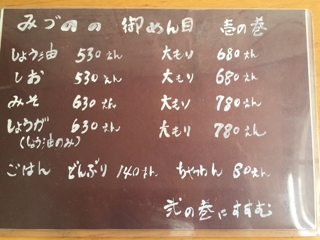 みづのの 御めん目 壱の巻
しょう油 530えん 大もり 680えん
しお 530えん 大もり 680えん
みそ 630えん 大もり 780えん
しょうが 630えん 大もり 780えん
(しょう油のみ)
ごはん どんぶり 140えん ちゃわん 80えん
弐の巻にすすむ